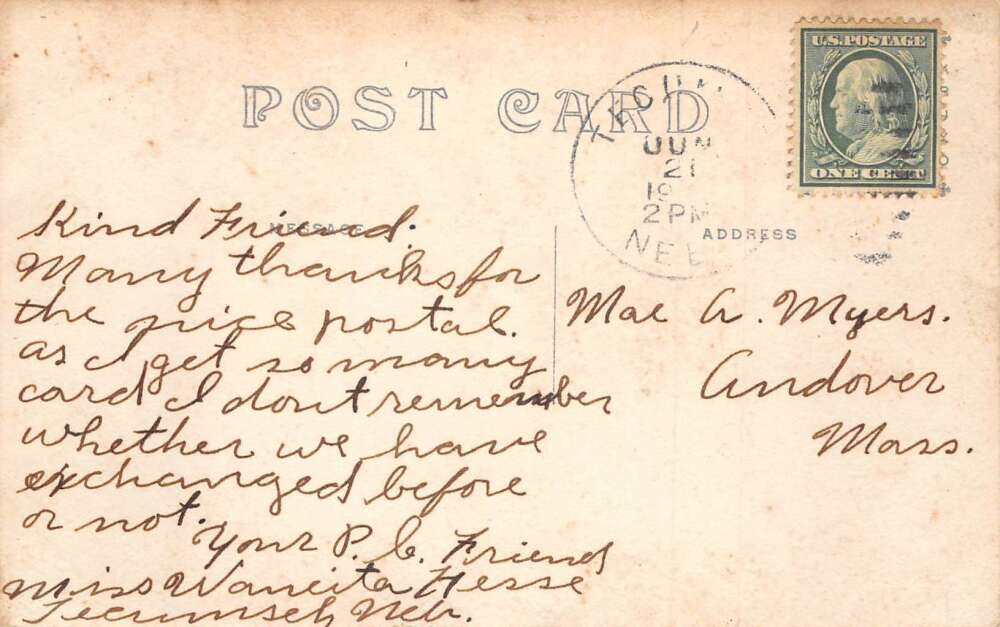 U.S. POSTAGE
ONE CENT
POST CARD
TECUM
JUN
21
19
2 PM
NEB
MESSAGE
ADDRESS
Kind Friend.
Many thanks for
the nice postal.
as I get so many
card I dont remember
whether we have
exchanged before
or not.
Your P. C. Friend
Miss Waneita Hesse
Tecumseh Neb.
Mae A. Myers.
Andover
Mass.